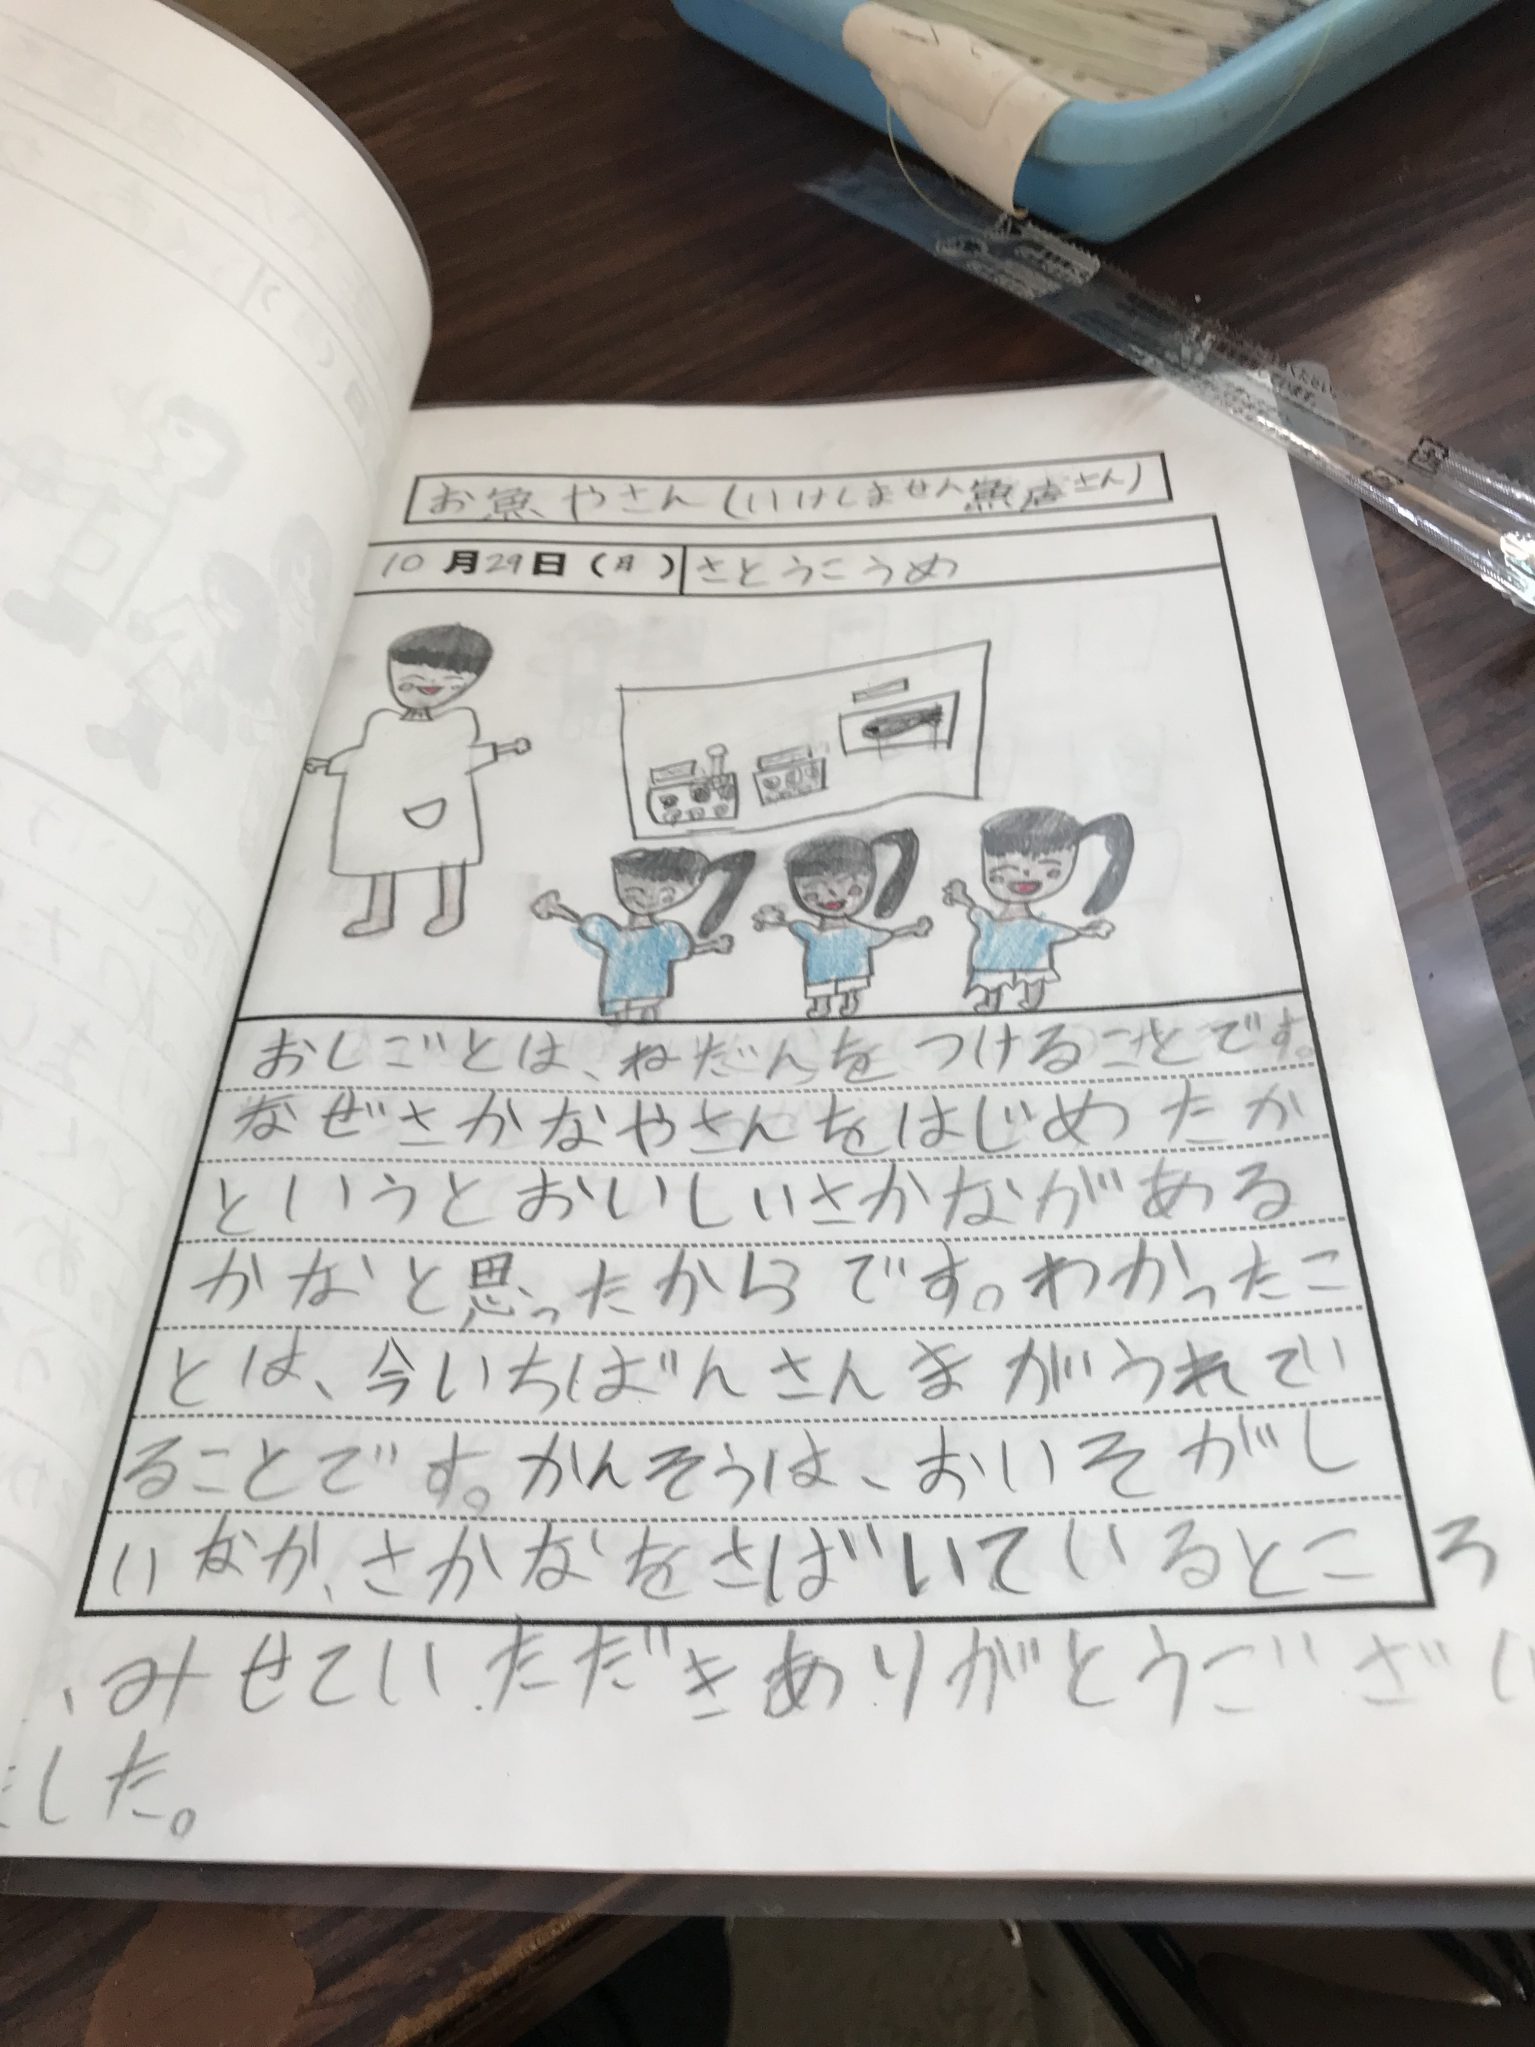 お魚やさん(いけしません魚店さん)
10月29日(月) さとうこうめ
おしごとは、ねだんをつけることです。
なぜさかなやさんをはじめたか
というとおいしいさかながある
かなと思ったからです。わかったこ
とは、今いちばんさんまがうれてい
ることです。かんそうは、おいそがし
いなか、さかなをさばいているところ
、みせていただきありがとうござい
ました。